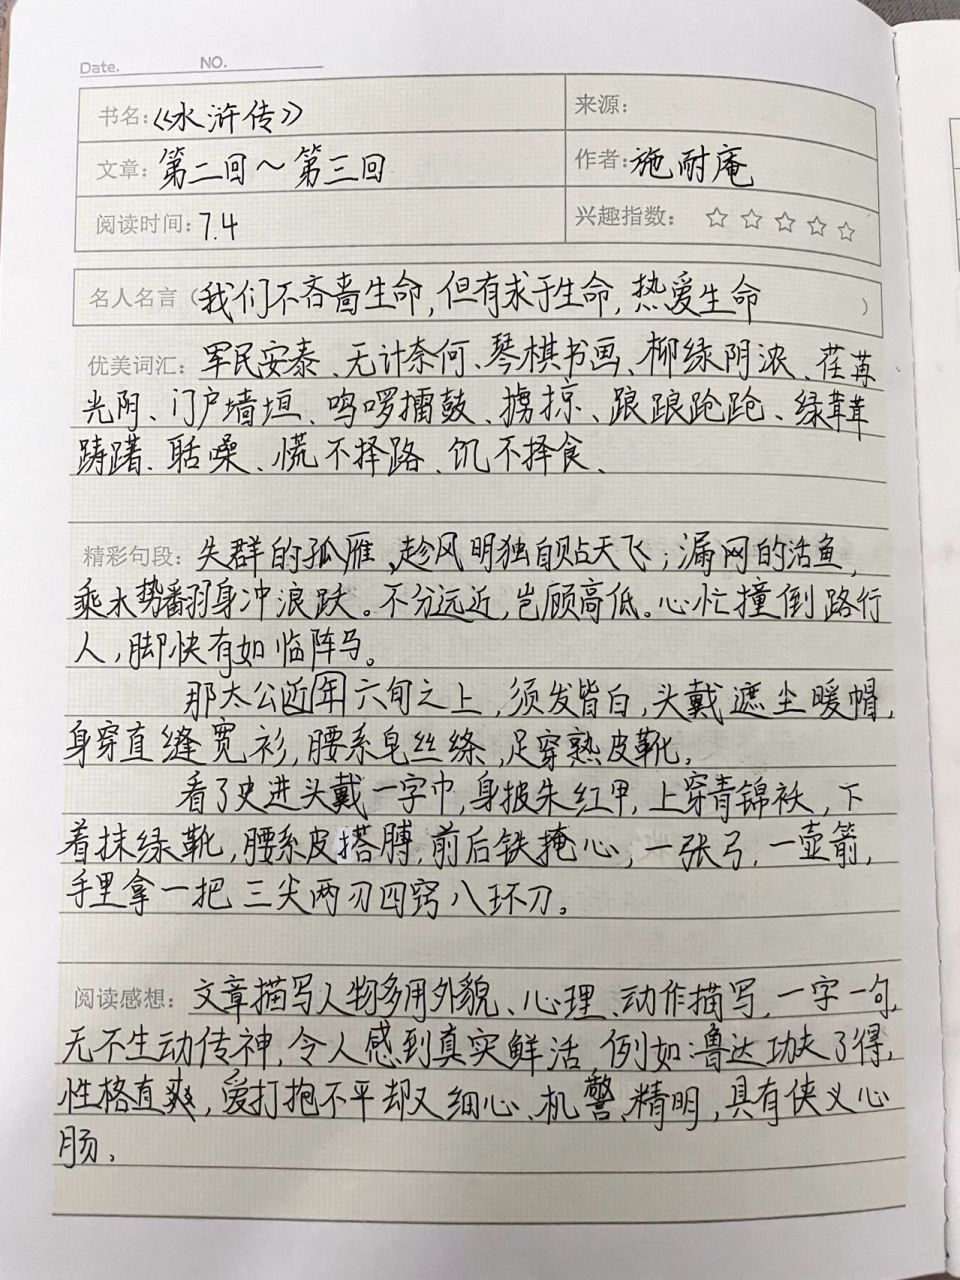 Date. NO.
书名:《水浒传》 来源:
文章:第二回～第三回 作者:施耐庵
阅读时间:7.4 兴趣指数: ☆ ☆ ☆ ☆ ☆
名人名言(我们不吝啬生命,但有求于生命,热爱生命)
优美词汇:军民安泰、无计奈何、琴棋书画、柳绿阴浓、荏苒
光阴、门户墙垣、鸣啰擂鼓、掳掠、踉踉跄跄、绿茸茸
踌躇、聒噪、慌不择路、饥不择食、
精彩句段:失群的孤雁、趁风明独自贴天飞;漏网的活鱼,
乘水势翻身冲浪跃。不分远近,岂顾高低。心忙撞倒路行
人,脚快有如临阵马。
那太公近年六旬之上,须发皆白,头戴遮尘暖帽,
身穿直缝宽衫,腰系皂丝绦,足穿熟皮靴。
看了史进头戴一字巾,身披朱红甲,上穿青锦袄,下
着抹绿靴,腰系皮搭膊,前后铁掩心,一张弓,一壶箭,
手里拿一把三尖两刃四窍八环刀。
阅读感想:文章描写人物多用外貌、心理、动作描写,一字一句,
无不生动传神,令人感到真实鲜活 例如:鲁达功夫了得,
性格直爽,爱打抱不平却又细心、机警、精明,具有侠义心
肠、